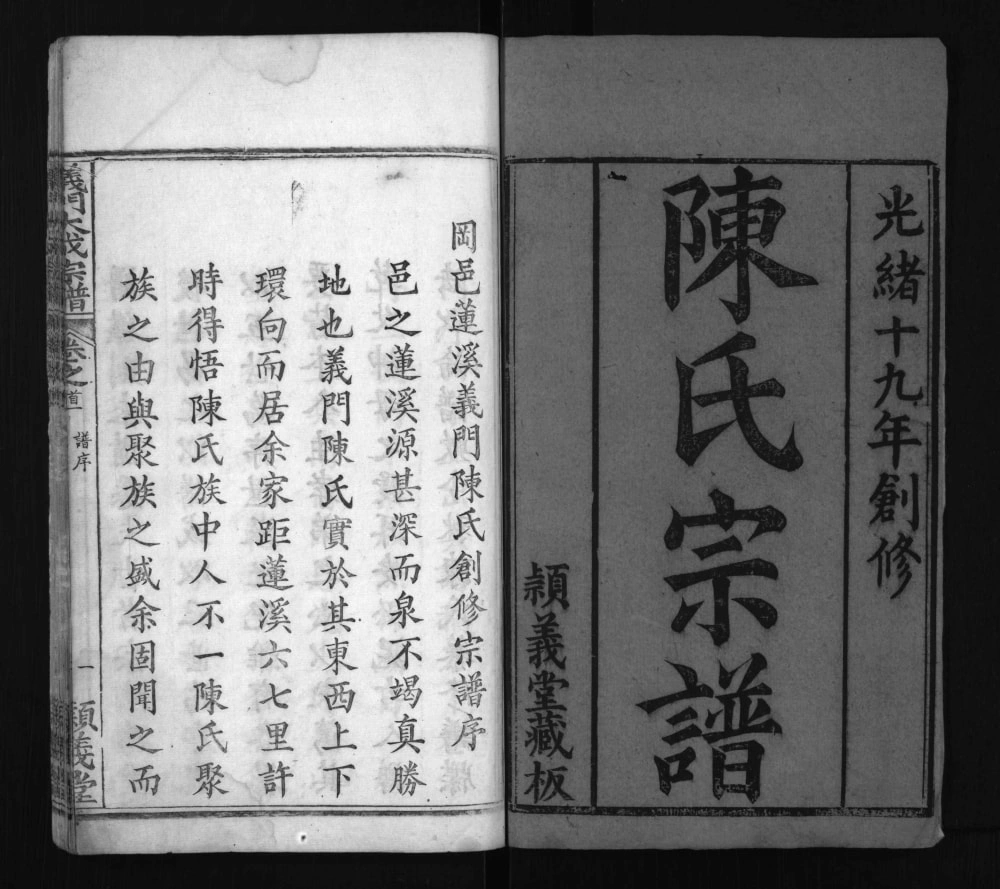 光緒十九年創修
陳氏宗譜
頴義堂藏板
岡邑蓮溪義門陳氏創修宗譜序
邑之蓮溪源甚深而泉不竭真勝
地也義門陳氏實於其東西上下
環向而居余家距蓮溪六七里許
時得悟陳氏族中人不一陳氏聚
族之由與聚族之盛余固聞之而
義門大成宗譜
卷之首
譜序
一
頴義堂